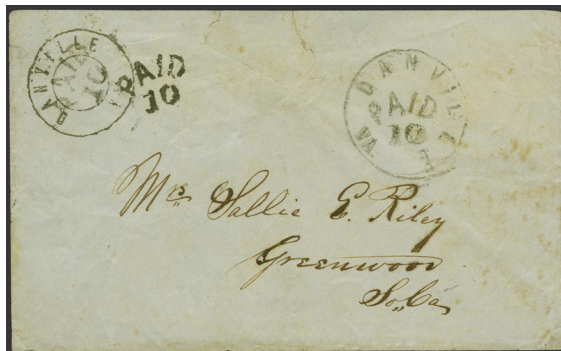 DANVILLE
PAID
10
PAID
10
DANVILLE
PAID
10
VA
Mrs Sallie E. Riley
Greenwood
So,, Ca,